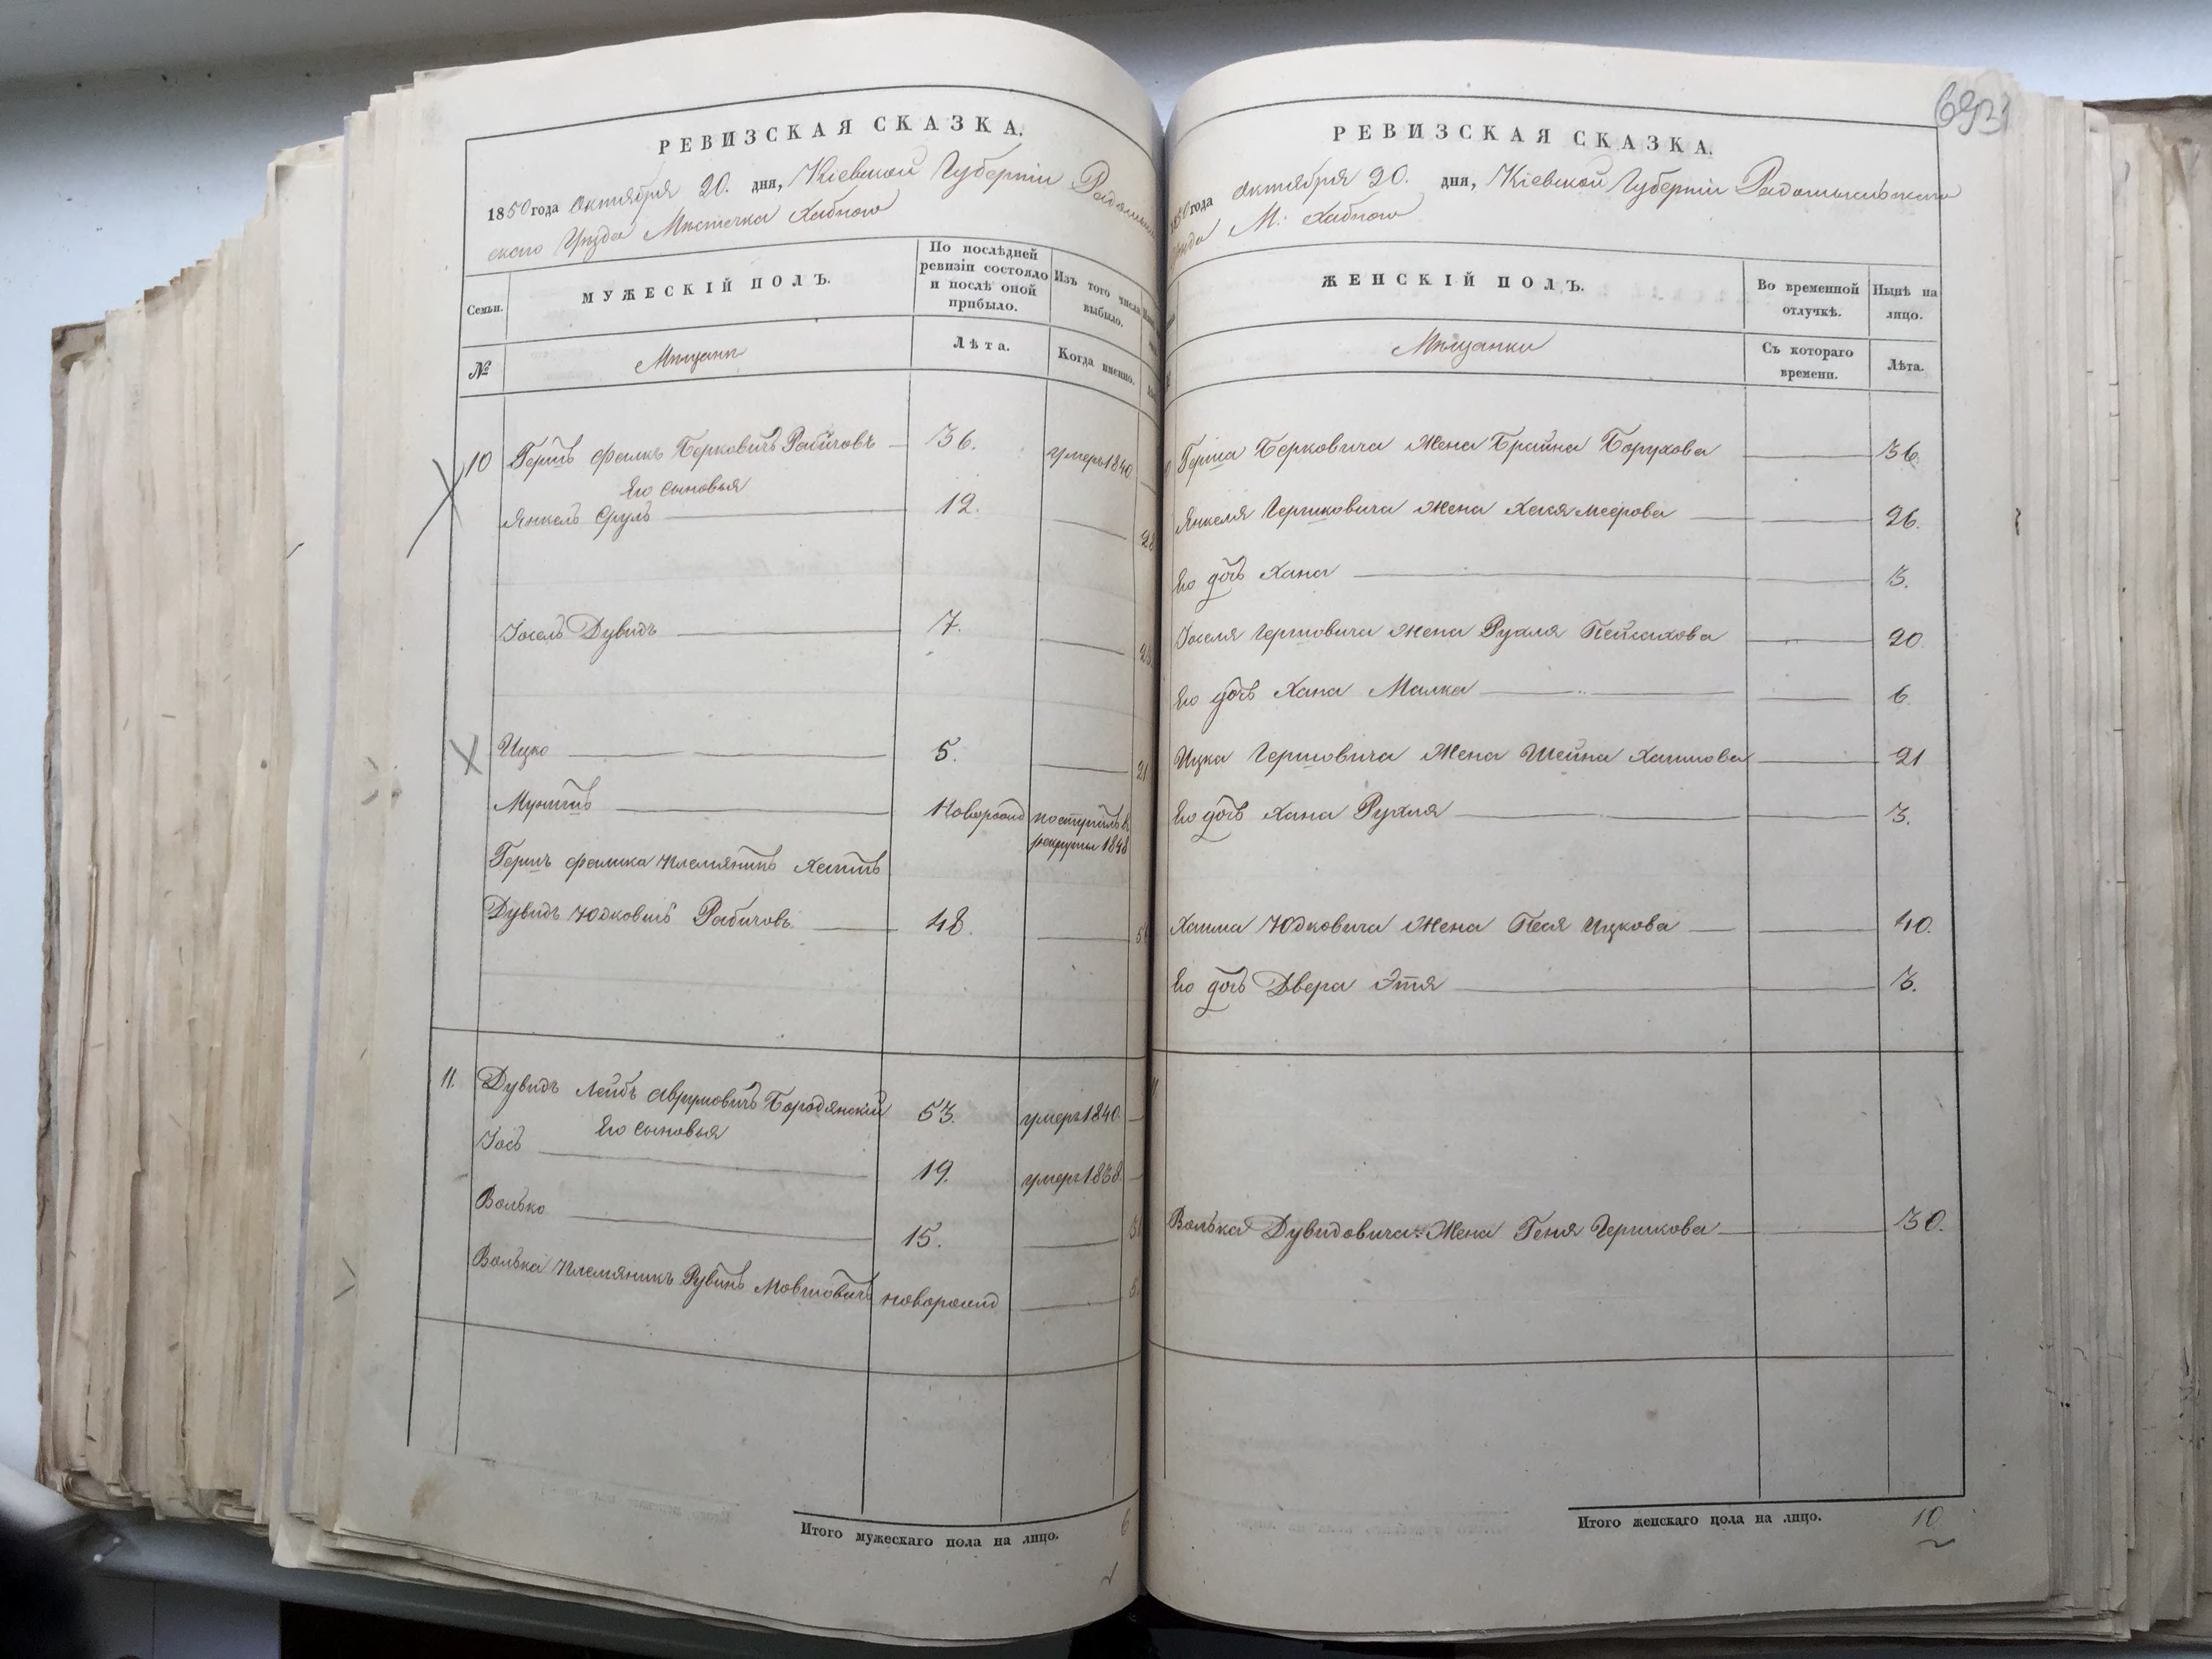 РЕВИЗСКАЯ СКАЗКА.
1850 года Октября 20. дня, Кіевской Губерніи
ского Уезда Местечка Хабного
Семьи.
МУЖЕСКІЙ ПОЛЪ.
По послѣдней ревизіи состояло и послѣ оной прибыло.
Изъ того числа выбыло.
№
Мещане
Лѣта.
Когда именно.
10 Гершъ Фалкъ Берковичъ Рабичовъ 36. умеръ 1840
Его сыновья
Янкель Сруль 12.
Іосель Дувидъ 7.
Ицко 5. 21
Мунишъ Новорожд поступилъ в рекруты 1848
Гершъ Фалика племянникъ Хаимъ
Дувидъ Юдковичъ Рабичовъ 48.
11. Дувидъ Лейбъ Аврумовичъ Бородянскій 53. умеръ 1840
Его сыновья
Іось 19. умеръ 1838.
Волько 15.
Волька племяникъ Рувинъ Мовшовичъ новорожд
Итого мужескаго пола на лицо. 6
693
РЕВИЗСКАЯ СКАЗКА.
года Октября 20. дня, Кіевской Губерніи Радомысльского
М. Хабного
ЖЕНСКІЙ ПОЛЪ.
Во временной отлучкѣ.
Нынѣ на лицо.
Мещанки
Съ котораго времени.
Лѣта.
Герша Берковича Жена Брайна Борухова 36.
Янкеля Гершковича Жена Хася Меерова 26.
Его дочь Хана 3.
Іоселя Гершовича Жена Рухля Пейсахова 20.
Его дочь Хана Малка 6.
Ицка Гершовича Жена Шейна Хаимова 21
Его дочь Хана Рухля 3.
Хаима Юдковича Жена Песя Ицкова 40.
Его дочь Двера Этя 3.
Волька Дувидовича Жена Геня Гершкова 30.
Итого женскаго пола на лицо. 10